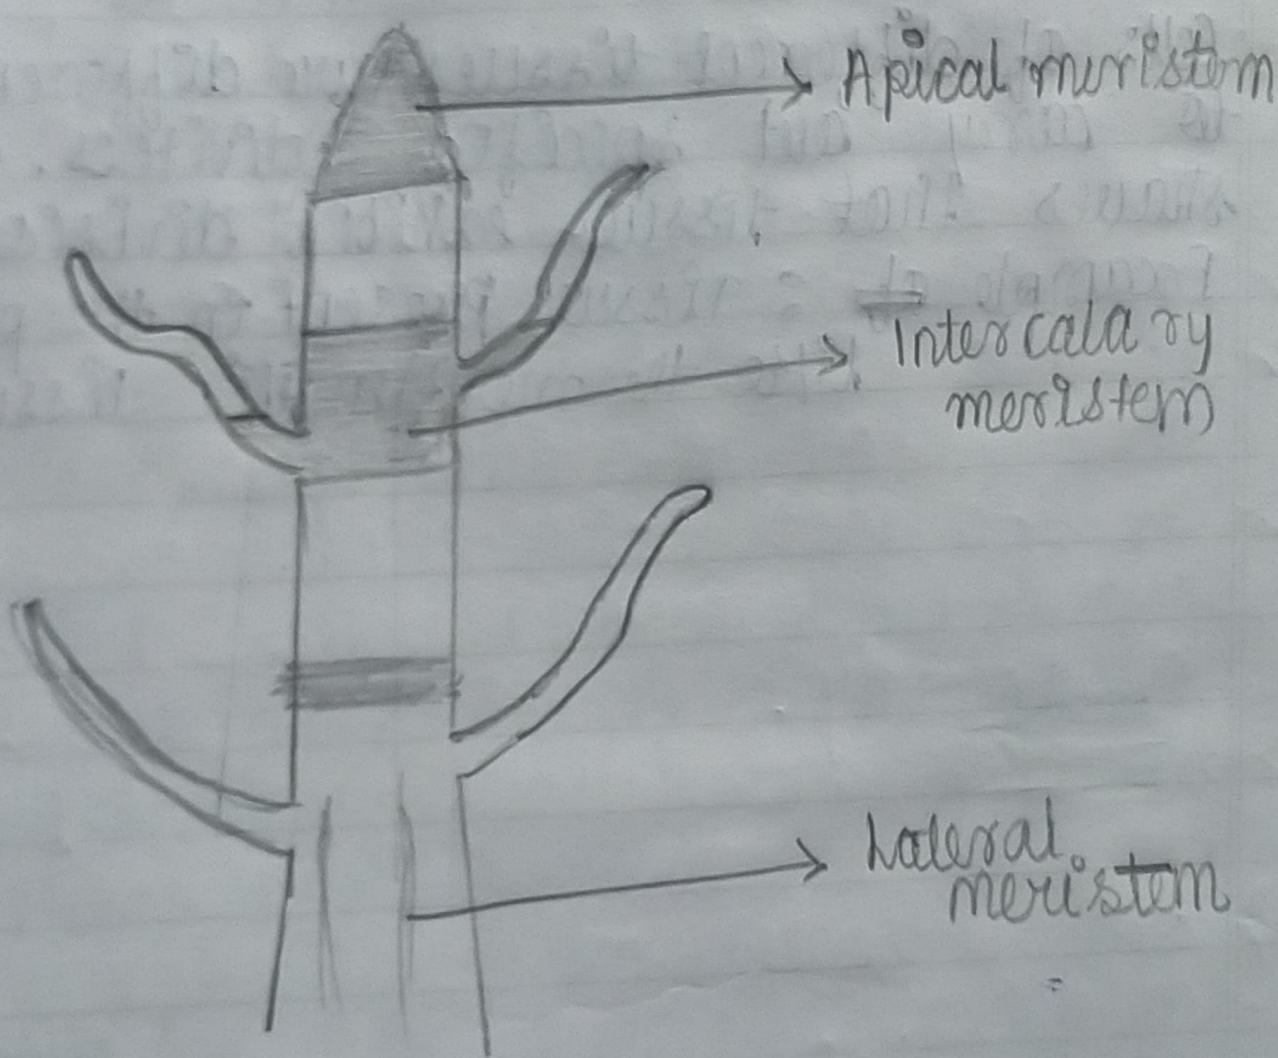 Apical meristem
Intercalary
meristem
Lateral
meristem